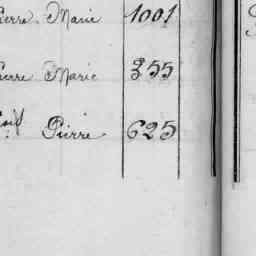 Pierre Marie 1001
Pierre Marie 355
Pierre 625